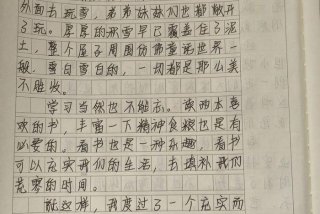 外面去玩雪，弟弟妹妹们也都敞开
了玩。厚厚的积雪早已覆盖住了泥
土，整个屋子周围仿佛童话世界一
般，雪白雪白的，一切都是那么美
不胜收。
学习当然也不能忘。读两本喜
欢的书，丰富一下精神食粮也是有
必要的。看书也是一种乐趣，看书
可以充实我们的生活，去填补我们
荒零的时间。
就这样，我度过了一个充实而